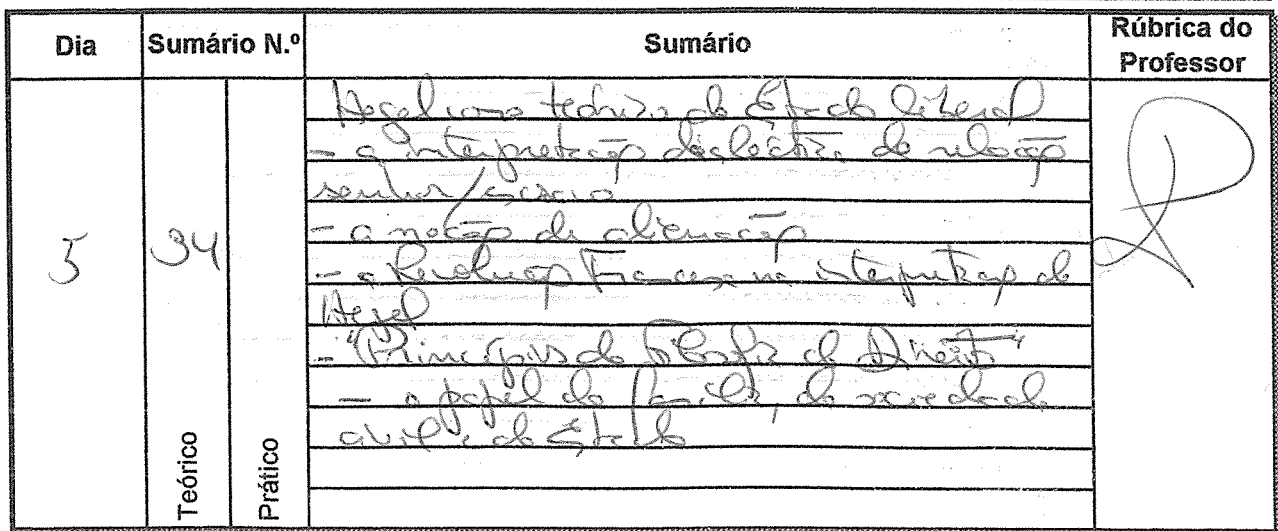 Dia Sumário N.º Sumário Rúbrica do Professor
5 34
Teórico
Prático
Hegel como teórico do Estado liberal
- a interpretação dialéctica da relação
senhor/escravo
- a noção de alienação
- a Revolução Francesa na interpretação de
Hegel
- "Princípios da Filosofia do Direito"
- o papel da família, da sociedade
civil e do Estado